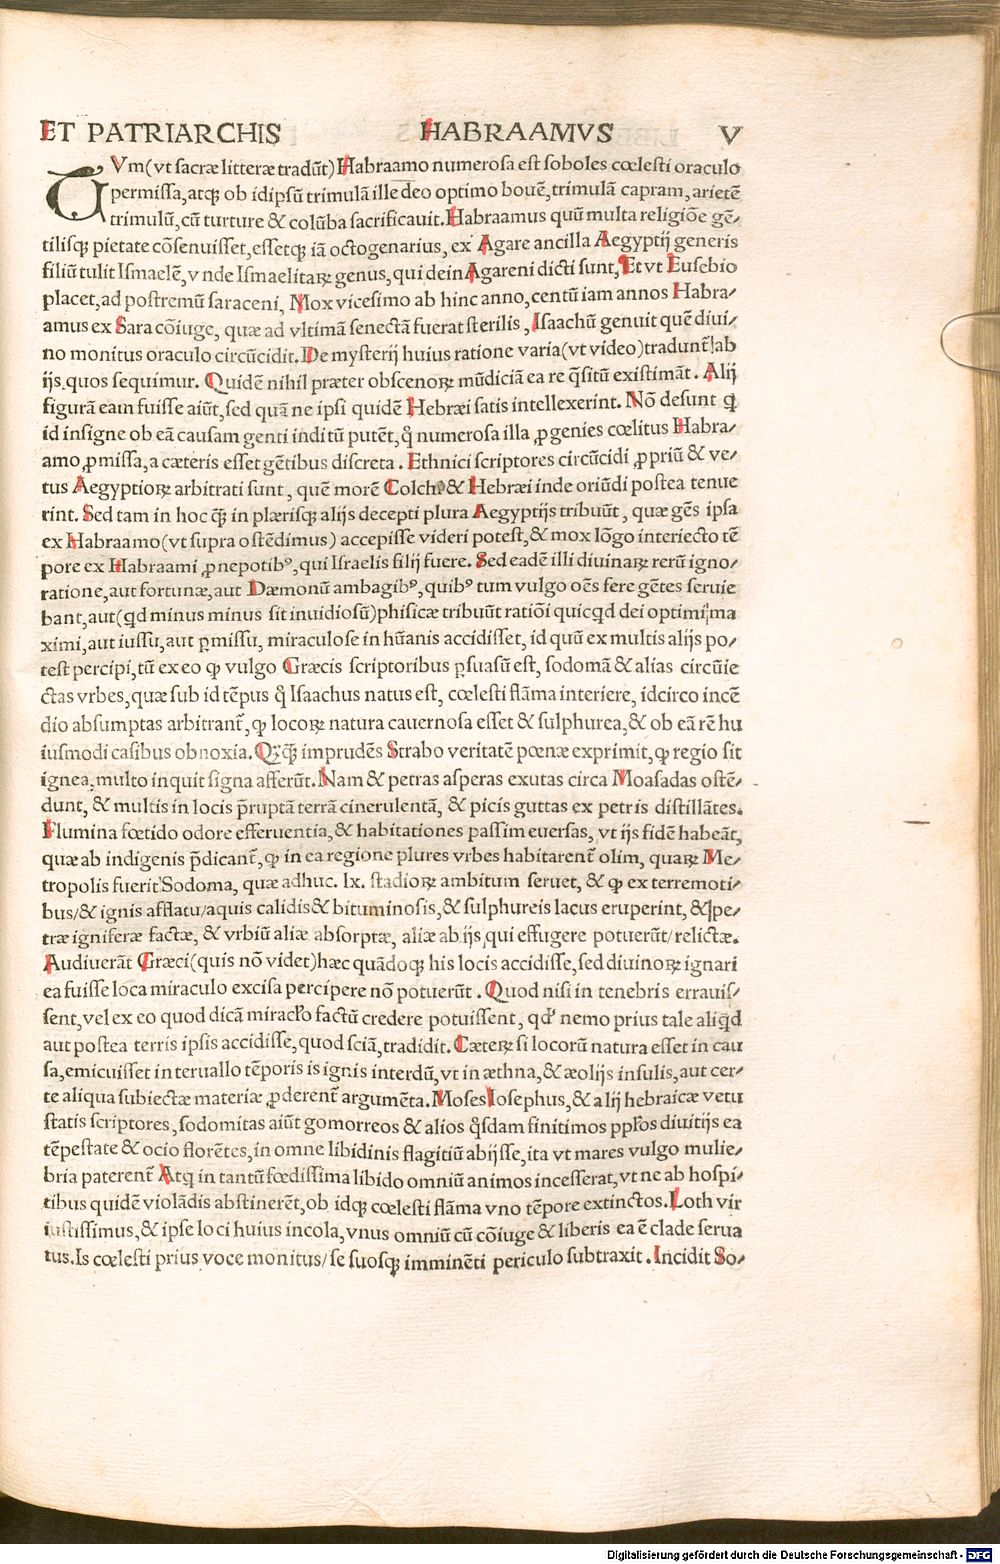 ET PATRIARCHIS HABRAAMVS V
TVm(vt sacræ litteræ tradūt)Habraamo numerosa est soboles cœlesti oraculo
permissa,atqꝫ ob idipsū trimulā ille deo optimo bouē,trimulā capram,arietē
trimulū,cū turture & colūba sacrificauit.Habraamus quū multa religiōe gē⸗
tilisqꝫ pietate cōsenuisset,essetqꝫ iā octogenarius, ex Agare ancilla Aegyptij generis
filiū tulit Ismaelē,vnde Ismaelitaꝝ genus,qui dein Agareni dicti sunt,Et vt Eusebio
placet,ad postremū saraceni, Mox vicesimo ab hinc anno,centū iam annos Habra⸗
amus ex Sara cōiuge, quæ ad vltimā senectā fuerat sterilis,Isaachū genuit quē diui⸗
no monitus oraculo circūcidit.De mysterij huius ratione varia(vt video)tradunt̄ ab
ijs,quos sequimur. Quidē nihil præter obscenoꝝ mūdiciā ea re q̄sitū existimāt. Alij
figurā eam fuisse aiūt,sed quā ne ipsi quidē Hebræi satis intellexerint. Nō desunt q
id insigne ob eā causam genti inditū putēt,q̄ numerosa illa ꝓgenies cœlitus Habra⸗
amo ꝓmissa,a cæteris esset gētibus discreta. Ethnici scriptores circūcidi ꝓpriū & ve⸗
tus Aegyptioꝝ arbitrati sunt, quē morē Colchꝰ & Hebræi inde oriūdi postea tenue
rint. Sed tam in hoc q̄ꝫ in plærisqꝫ alijs decepti plura Aegyptijs tribuūt, quæ gēs ipsa
ex Habraamo(vt supra ostēdimus) accepisse videri potest,& mox lōgo interiecto tē
pore ex Habraami ꝓnepotibꝰ,qui Israelis filij fuere. Sed eadē illi diuinaꝝ rerū igno⸗
ratione,aut fortunæ,aut Dæmonū ambagibꝰ,quibꝰ tum vulgo oēs fere gētes seruie
bant,aut(qd minus minus sit inuidiosū)phisicæ tribuūt ratiōi quicqd dei optimi ma
ximi,aut iussu,aut ꝑmissu, miraculose in hūanis accidisset, id quū ex multis alijs po⸗
test percipi,tū ex eo ꝙ vulgo Græcis scriptoribus ꝑsuasū est, sodomā & alias circūie
ctas vrbes,quæ sub id tēpus q̄ Isaachus natus est, cœlesti flāma interiere, idcirco incē
dio absumptas arbitrant̄, ꝙ locoꝝ natura cauernosa esset & sulphurea,& ob eā rē hu
iusmodi casibus obnoxia.Qꝗ̄ꝫ imprudēs Strabo veritatē pœnæ exprimit,ꝙ regio sit
ignea,multo inquit signa afferūt.Nam & petras asperas exutas circa Moasadas ostē⸗
dunt, & multis in locis p̄ruptā terrā cinerulentā, & picis guttas ex petris distillātes.
Flumina fœtido odore efferuentia,& habitationes passim euersas, vt ijs fidē habeāt,
quæ ab indigenis p̄dicant̄,ꝙ in ea regione plures vrbes habitarent̄ olim, quaꝝ Me⸗
tropolis fuerit Sodoma, quæ adhuc. lx. stadioꝝ ambitum seruet, & ꝙ ex terremoti⸗
bus/& ignis afflatu/aquis calidis & bituminosis,& sulphureis lacus eruperint, & pe⸗
træ igniferæ factæ, & vrbiū aliæ absorptæ, aliæ ab ijs,qui effugere potuerūt/relictæ.
Audiuerāt Græci(quis nō videt)hæc quādoqꝫ his locis accidisse,sed diuinoꝝ ignari
ea fuisse loca miraculo excisa percipere nō potuerūt. Quod nisi in tenebris errauis⸗
sent,vel ex eo quod dicā miraclo factū credere potuissent, qd nemo prius tale aliqd
aut postea terris ipsis accidisse,quod sciā,tradidit. Cæteꝝ si locorū natura esset in cau
sa,emicuisset in teruallo tēporis is ignis interdū,vt in æthna,& æolijs insulis,aut cer⸗
te aliqua subiectæ materiæ ꝓderent̄ argumēta.Moses Iosephus,& alij hebraicæ vetu
statis scriptores,sodomitas aiūt gomorreos & alios q̄sdam finitimos pplos diuitijs ea
tēpestate & ocio florētes,in omne libidinis flagitiū abijsse,ita vt mares vulgo mulie⸗
bria paterent̄ Atq in tantū fœdissima libido omniū animos incesserat,vt ne ab hospi⸗
tibus quidē violādis abstinerēt,ob idqꝫ cœlesti flāma vno tēpore extinctos.Loth vir
iustissimus,& ipse loci huius incola,vnus omniū cū cōiuge & liberis ea ē clade serua
tus.Is cœlesti prius voce monitus/se suosqꝫ imminēti periculo subtraxit.Incidit So⸗
Digitalisierung gefördert durch die Deutsche Forschungsgemeinschaft - DFG